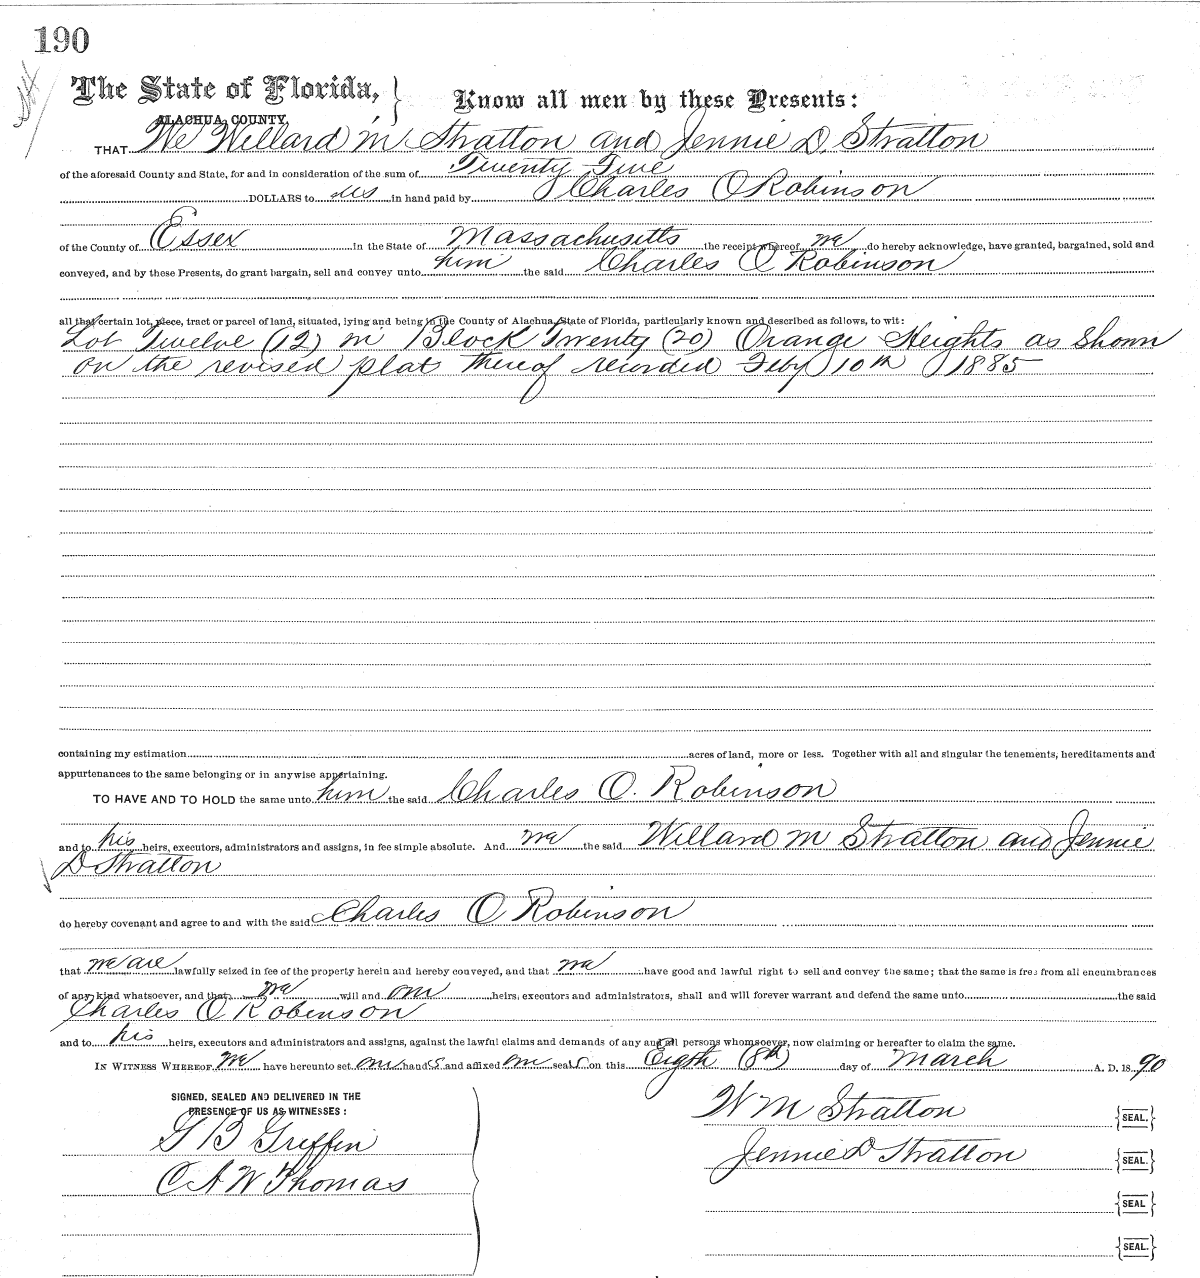 190
The State of Florida, } Know all men by these Presents:
ALACHUA COUNTY.
THAT We Willard M Stratton and Jennie D Stratton
of the aforesaid County and State, for and in consideration of the sum of Twenty Five
DOLLARS to us in hand paid by Charles O Robinson
of the County of Essex in the State of Massachusetts the receipt whereof we do hereby acknowledge, have granted, bargained, sold and
conveyed, and by these Presents, do grant bargain, sell and convey unto him the said Charles O Robinson
all that certain lot, piece, tract or parcel of land, situated, lying and being in the County of Alachua, State of Florida, particularly known and described as follows, to wit:
Lot Twelve (12) in Block Twenty (20) Orange Heights as Shown
on the revised plat thereof recorded Feby 10th 1885
containing my estimation acres of land, more or less. Together with all and singular the tenements, hereditaments and
appurtenances to the same belonging or in anywise appertaining.
TO HAVE AND TO HOLD the same unto him the said Charles O. Robinson
and to his heirs, executors, administrators and assigns, in fee simple absolute. And we the said Willard M Stratton and Jennie
D Stratton
do hereby covenant and agree to and with the said Charles O Robinson
that we are lawfully seized in fee of the property herein and hereby conveyed, and that we have good and lawful right to sell and convey the same; that the same is free from all encumbrances
of any kind whatsoever, and that we will and our heirs, executors and administrators, shall and will forever warrant and defend the same unto the said
Charles O Robinson
and to his heirs, executors and administrators and assigns, against the lawful claims and demands of any and all persons whomsoever, now claiming or hereafter to claim the same.
IN WITNESS WHEREOF we have hereunto set our hands and affixed our seals on this Eigth (8th) day of March A. D. 1890
SIGNED, SEALED AND DELIVERED IN THE
PRESENCE OF US AS WITNESSES:
G B Griffin
O A W Thomas
W M Stratton {SEAL.}
Jennie D Stratton {SEAL.}
{SEAL}
{SEAL.}